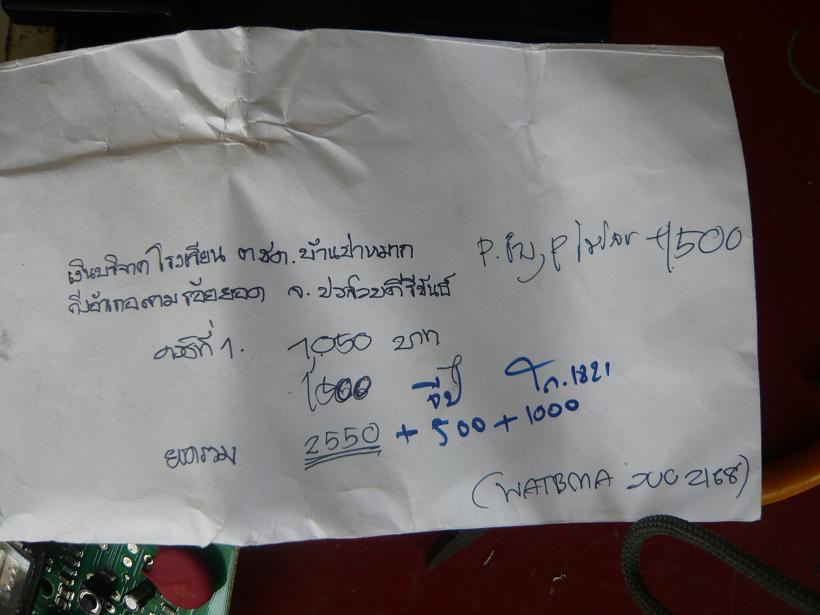 เงินบริจาค โรงเรียน ตชด. บ้านป่าหมาก
กิ่งอำเภอสามร้อยยอด จ. ประจวบคีรีขันธ์
+500
ครั้งที่ 1. 1,050 บาท
1500 จีป โก.1821
ยอดรวม 2550 + 500 + 1000
(WATBMA